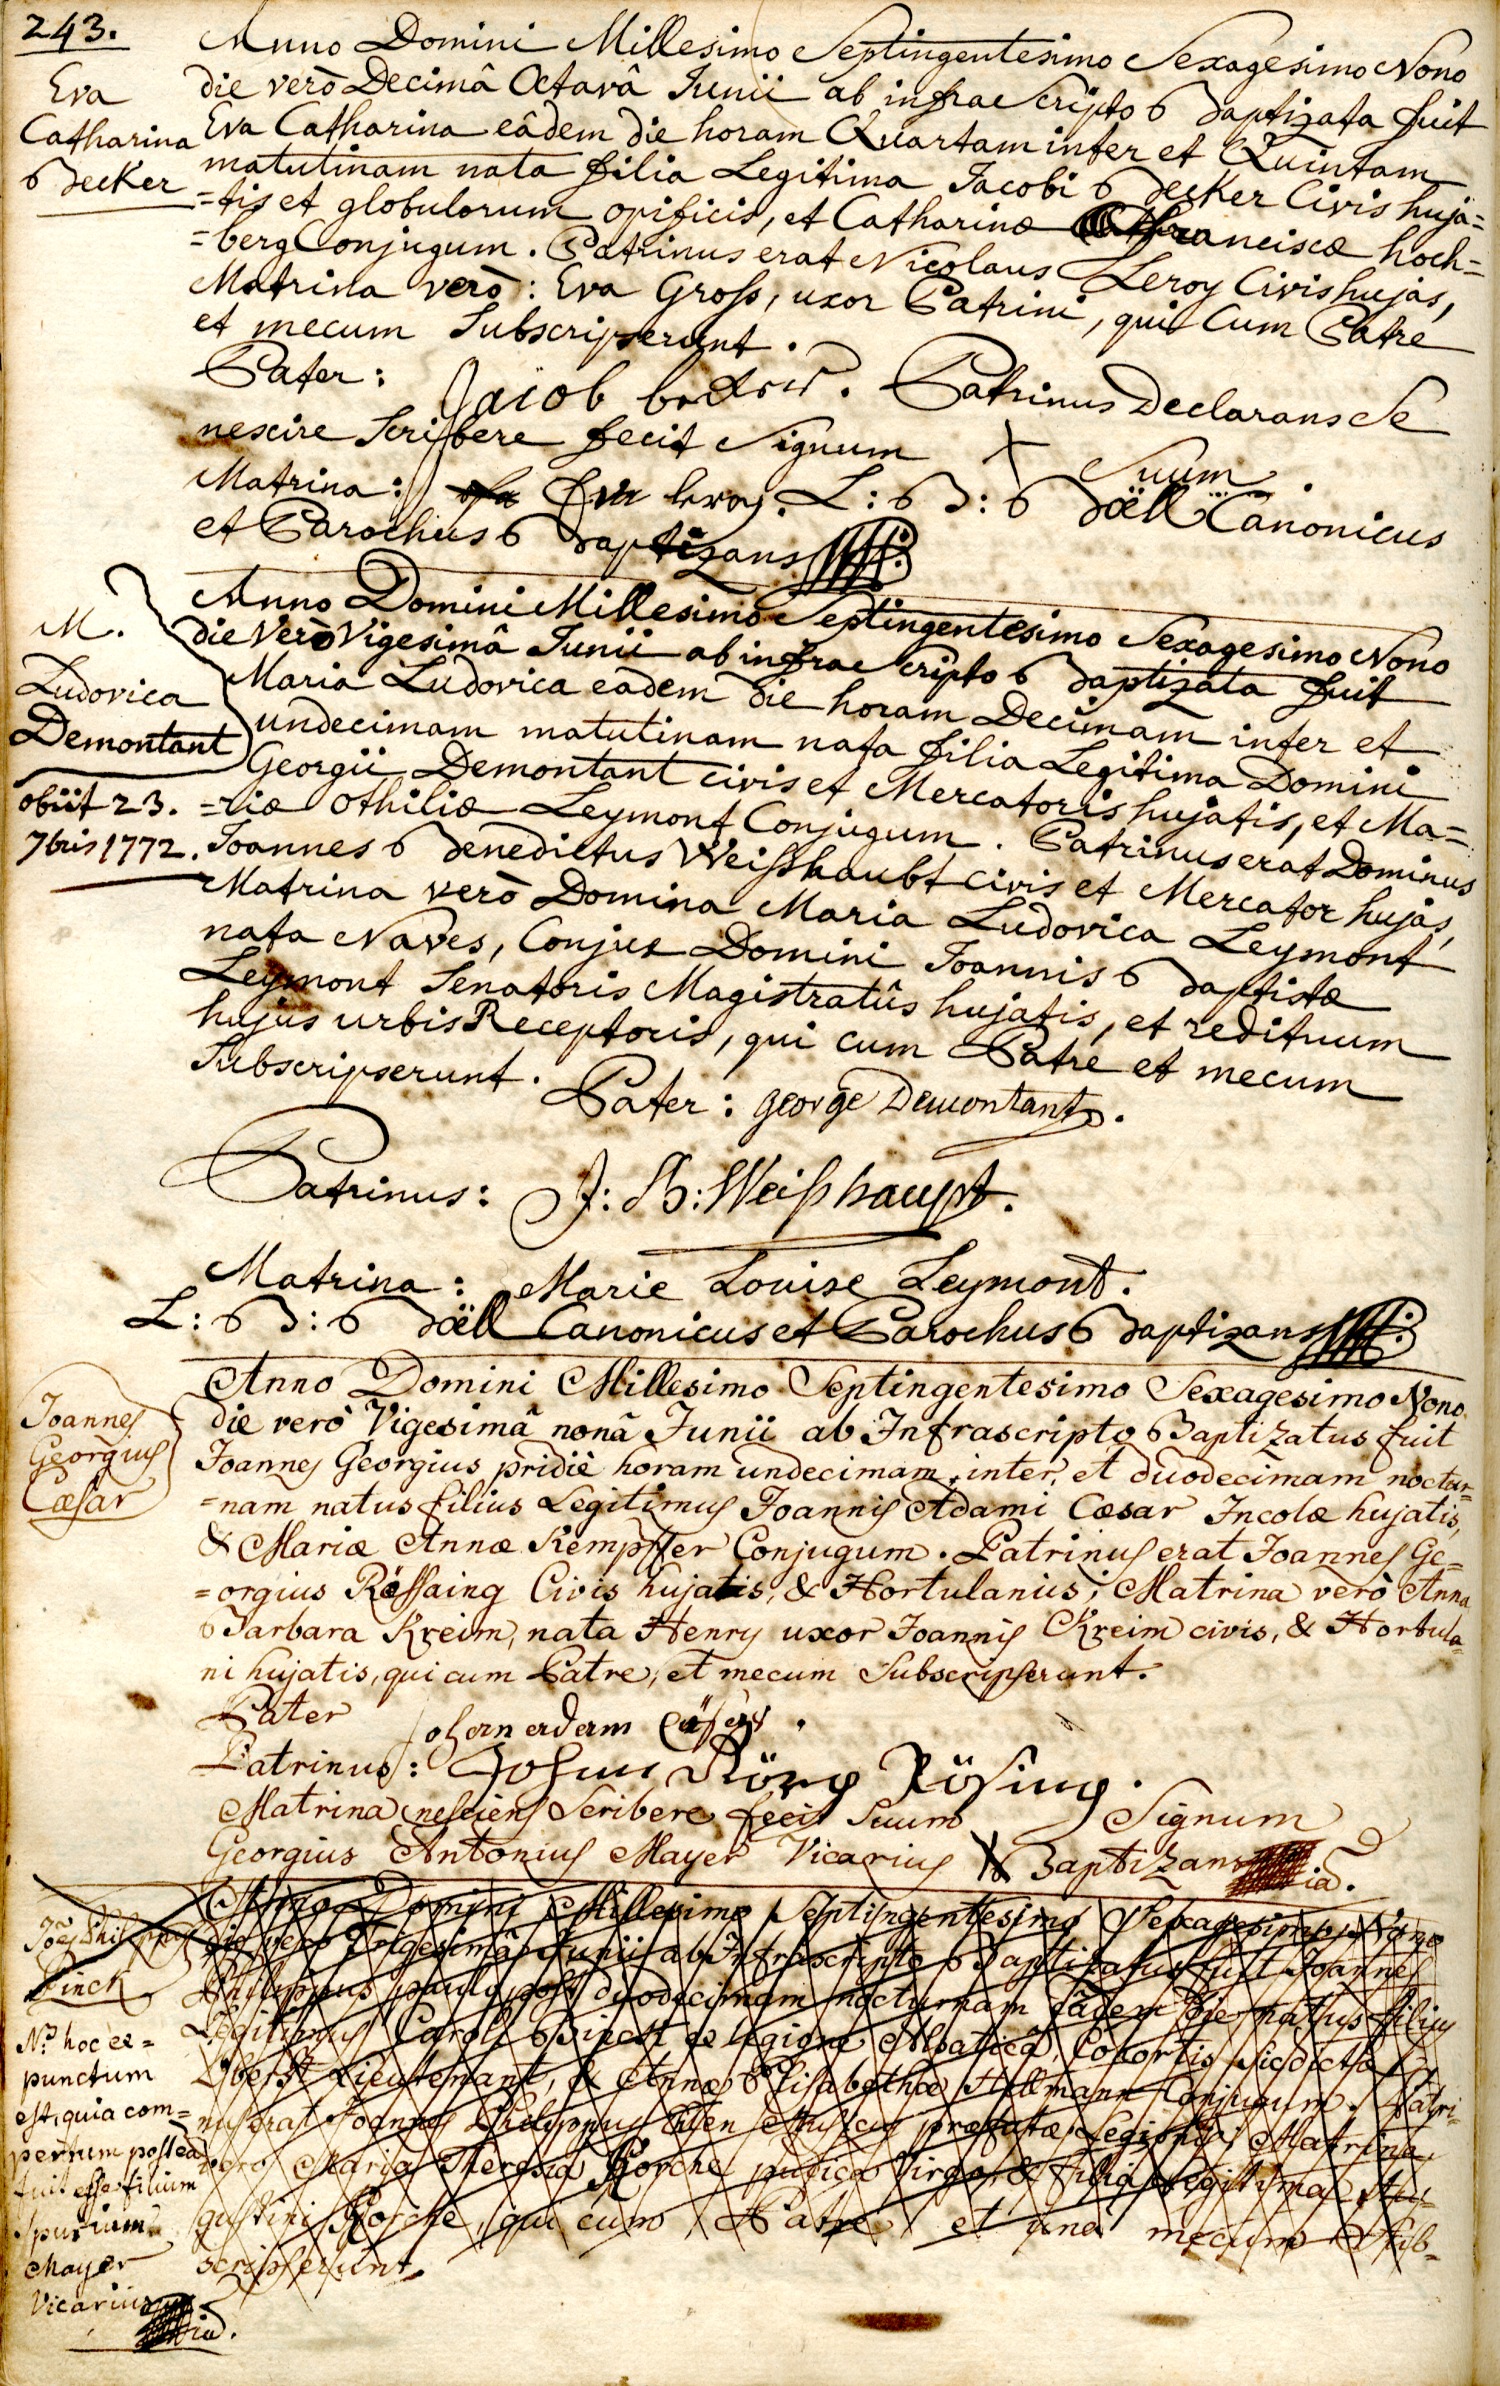 243.
Eva
Catharina
Becker
Anno Domini Millesimo Septingentesimo Sexagesimo Nono
die verò Decimâ Octavâ Junii ab infrascripto Baptizata fuit
Eva Catharina eâdem die horam Quartam inter et Quintam
matutinam nata filia Legitima Jacobi Becker Civis huja=
=tis et globulorum opificis, et Catharinæ Franciscæ hoch=
=berg Conjugum. Patrinus erat Nicolaus Leroy Civis hujas,
Matrina verò: Eva Groß, uxor Patrini, qui Cum Patre
et mecum Subscripserunt.
Pater: Jacob becker. Patrinus Declarans Se
nescire Scribere fecit Signum X Suum.
Matrina: Eva leroy. L: B: Böell Canonicus
et Parochus Baptizans
M.
Ludovica
Demontant
obiit 23.
7bris 1772.
Anno Domini Millesimo Septingentesimo Sexagesimo Nono
die Verò Vigesimâ Junii ab infrascripto Baptizata fuit
Maria Ludovica eadem die horam Decimam inter et
undecimam matutinam nata filia Legitima Domini
Georgii Demontant civis et Mercatoris hujatis, et Ma=
=riæ Othiliæ Leymont Conjugum. Patrinus erat Dominus
Joannes Benedictus Weißhaubt civis et Mercator hujas,
Matrina verò Domina Maria Ludovica Leymont
nata Naves, Conjux Domini Joannis Baptistæ
Leymont Senatoris Magistratûs hujatis, et redituum
hujus urbis Receptoris, qui cum Patre et mecum
Subscripserunt. Pater: george Demontant.
Patrinus: J: B: Weißhaupt.
Matrina: Marie Louise Leymont.
L: B: Böell Canonicus et Parochus Baptizans
Joannes
Georgius
Cæsar
Anno Domini Millesimo Septingentesimo Sexagesimo Nono
die verò Vigesimâ nonâ Junii ab Infrascripto Baptizatus fuit
Joannes Georgius pridiè horam undecimam inter, et duodecimam noctur=
=nam natus filius Legitimus Joannis Adami Cæsar Incolæ hujatis,
& Mariæ Annæ Kempffer Conjugum. Patrinus erat Joannes Ge=
=orgius Rössaing Civis hujatis, & Hortulanus; Matrina verò Anna
Barbara Kreim, nata Henry uxor Joannis Kreim civis, & Hortula=
ni hujatis, qui cum Patre, et mecum Subscripserunt.
Pater
Patrinus: Johans Görg Rösing.
Matrina nesciens Scribere fecit Suum Signum
Georgius Antonius Mayer Vicarius X Baptizans
Joes Philippus
Pinck
Na hoc ex=
punctum
est, quia com=
pertum postea
fuit esse filium
spurium.
Mayer
Vicarius
Anno Domini Millesimo Septingentesimo Sexagesimo Nono
die vero Trigesimâ Junii ab Infrascripto Baptizatus fuit Joannes
Philippus paulo post duodecimam nocturnam eâdem die natus filius
Legitimus Caroli de legione Alsaticâ, Cohortis sic dictæ
Oberst Lieutenant, & Annæ Elisabethæ Hellmann Conjugum. Patri=
nus erat Joannes Philippus præfatæ Legionis; Matrina
vero Maria Theresia Korche pudica Virgo, & filia Legitima Au=
gustini Korche, qui cum Patre et una mecum Sub=
scripserunt.